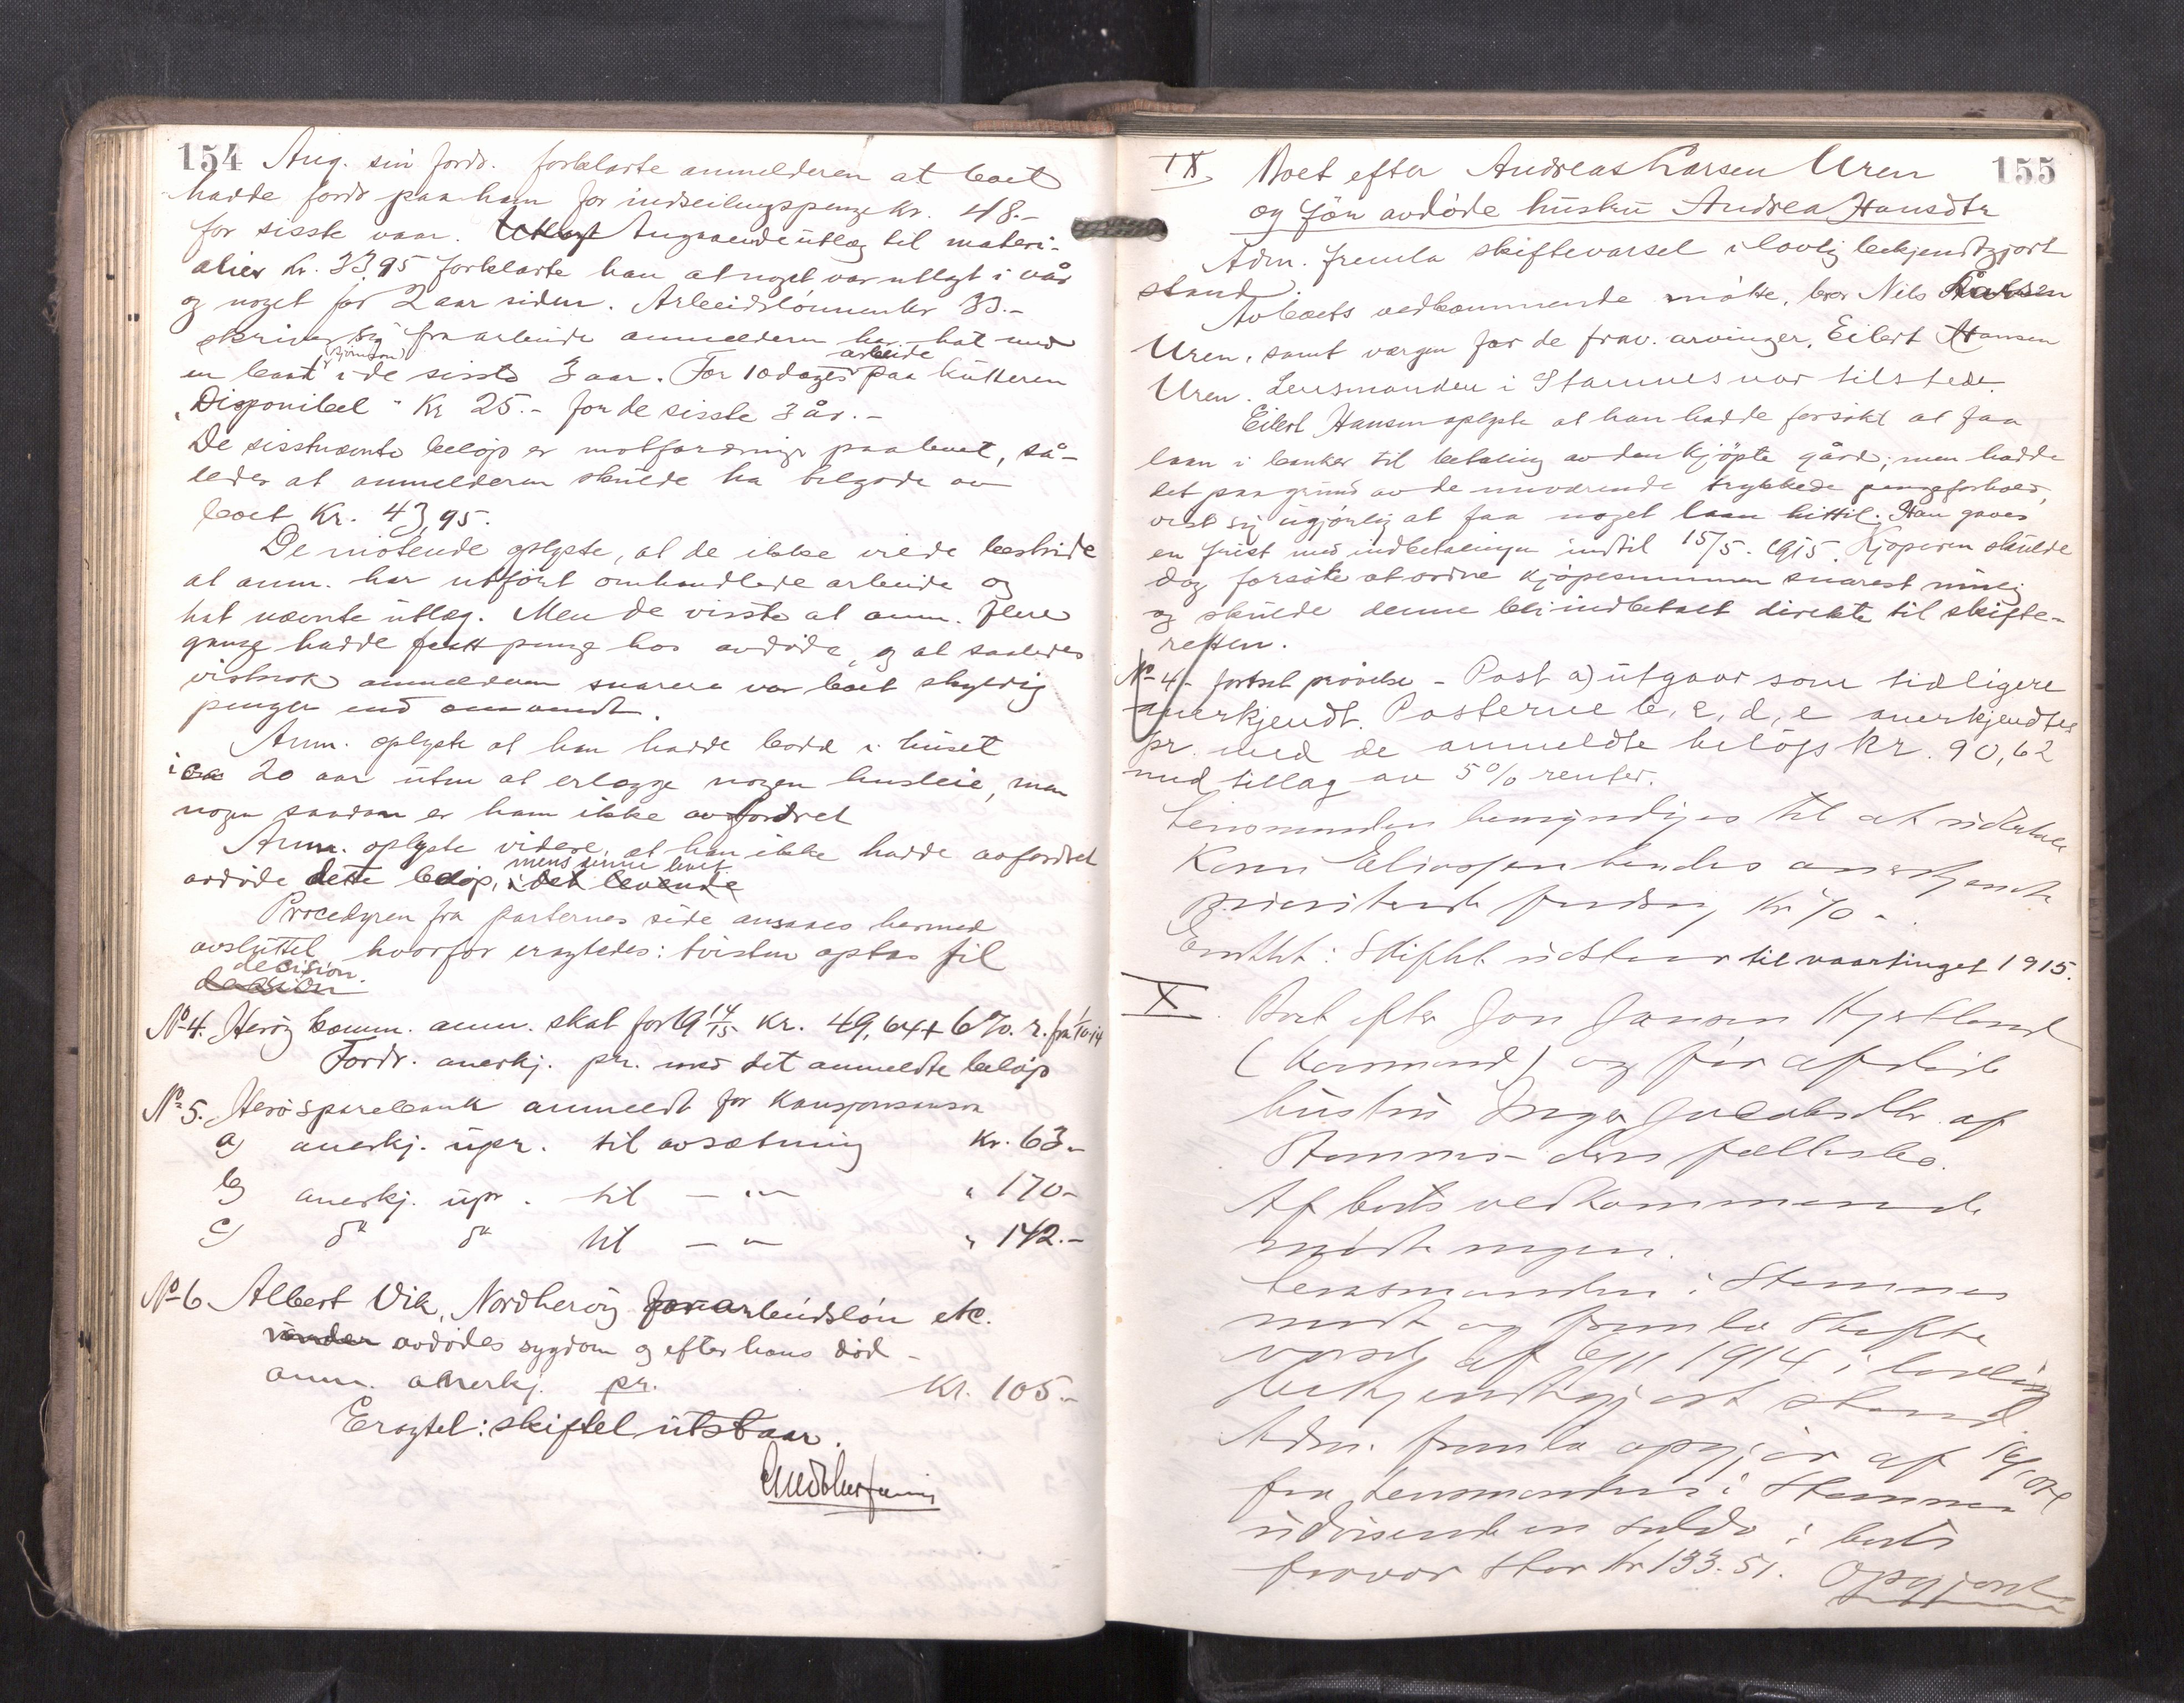 154
Ang. sin fordr. forklarte anmelderen at boet
hadde fordr paa ham for indseilingspenge kr. 48.-
for sisste vaar. Utlagt Angaaende utlæg til materi-
alier kr. 33,95 forklarte han at noget var utlagt i vår
og noget for 2 aar siden. Arbeidslönnen kr 33.-
skriver sig fra arbeide anmelderen har hat med
en baat i de sisste 3 aar. For 10 dages arbeide paa kutteren
"Disponibel" Kr 25.- for de sisste 3 år.-
De sisstnævnte belöp er motfordringer paa boet, så-
ledes at anmelderen skulde ha tilgode av
boet Kr. 43,95.
De mötende oplyste, at de ikke vilde bestride
at anm. har utfört omhandlede arbeide og
hat nævnte utlæg. Men de visste at anm. flere
gange hadde faatt penge hos avdöde, og at saaledes
vistnok anmelderen snarere var boet skyldig
penger end omvendt.
Anm. oplyste at han hadde bodd i huset
i ca 20 aar uten at erlægge nogen husleie, men
nogen saadan er ham ikke avfordret
Anm. oplyste videre, at han ikke hadde avfordret
avdöde dette belöp, mens denne levet i det levende
Procedyren fra parternes side ansaaes hermed
avsluttet hvorfor eragtedes: tvisten optas til
decision.
No 4. Heröy komm. anm. skat for 19 14/15 kr. 49,64 + 6% r. fra 1/10-14
Fordr. anerkj. pr. med det anmeldte belöp
No 5. Herö sparebank anmeldt for kausjonsansv
a) anerkj. upr. til avsætning Kr. 63.-
b) anerkj. upr. til — " — " 170.-
c) do do til — " — " 142.-
No 6. Albert Vik, Nordheröy for arbeidslön etc.
under avdödes sygdom og efter hans död -
anm. anerkj. pr. Kr. 105.-
Eragtet: skiftet utstaar.
155
IX. Boet efter Andreas Larsen Uren
og för avdöde hustru Andrea Hansdtr
Adm. fremla skiftevarsel i lovlig bekjendtgjort
stand.
Av boets vedkommende mötte, bror Nils
Uren, samt værgen for de frav. arvinger, Eilert Hansen
Uren. Lensmanden i Stamnes var tilstede.
Eilert Hansen oplyste at han hadde forsökt at faa
laan i banker til betaling av den kjöpte gård; men hadde
det paa grund av de nuværende trykkede pengeforhold,
vist sig ugjörlig at faa noget laan hittil. Han gaves
en frist med indbetalingen indtil 15/5. 1915. Kjöperen skulde
dog forsöke at ordne kjöpesummen snarest mulig
og skulde denne bli indbetalt direkte til skifte-
retten.
No 4.- fortsat prövelse - Post a) utgaar som tidligere
anerkjendt. Posterne b, c, d, e anerkjendtes
pr. med de anmeldte belöp kr. 90,62
med tillæg av 5% renter.
Lensmanden bemyndiges til at udbetale
Karen Eliassen hendes anerkjendte
prioriterede fordring Kr 70.-
Eragtet: Skiftet udstaar til vaartinget 1915.
X. Boet efter Jon Jansen Hjertland
og för afdöde
hustru Inger Jacobsdtr. af
Stamnes - deres fællesbo.
Af boets vedkommende
mödte ingen.
Lensmanden i Stamnes
mödt og fremla Skifte
varsel af 6/11 1914 i lovlig
bekjendtgjort stand
Adm. fremla opgjör af
fra Lensmanden i Stamnes
udvisende en saldo i boets
favör stor Kr 133.51. Opgjöret